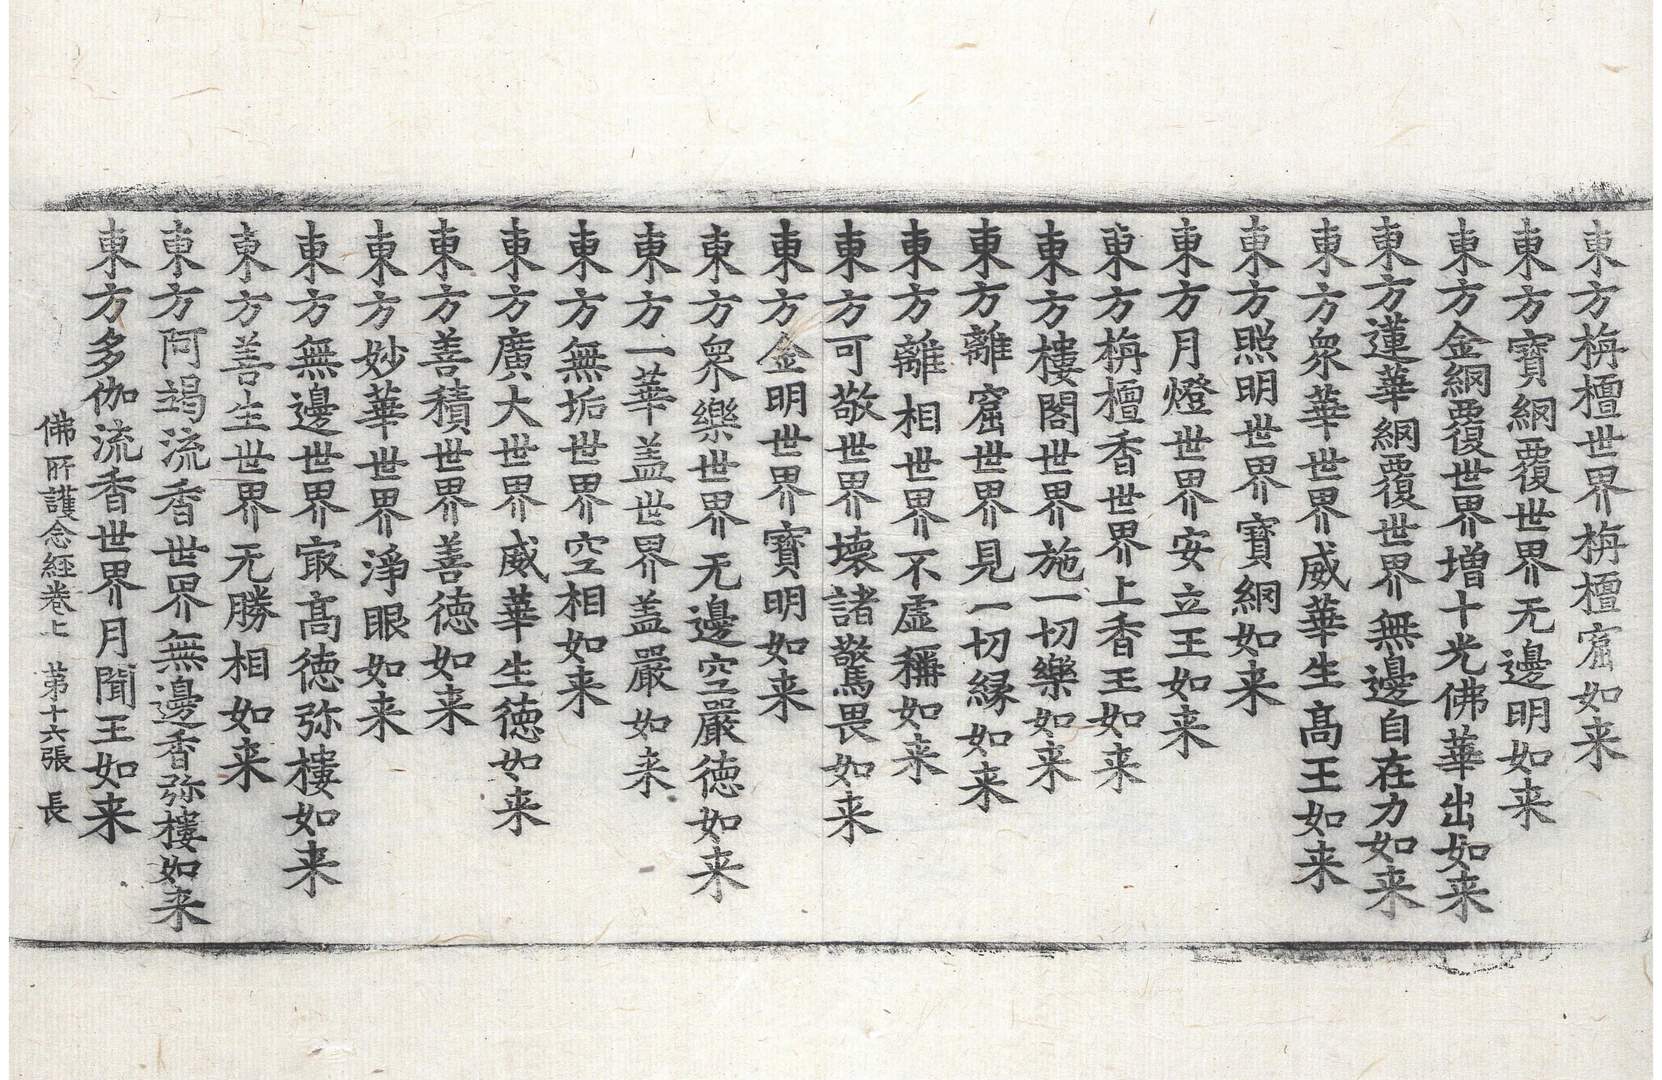 東方栴檀世界栴檀窟如来
東方寶網覆世界无邊明如来
東方金網覆世界增十光佛華出如来
東方蓮華網覆世界無邊自在力如来
東方衆華世界威華生髙王如来
東方照明世界寶網如来
東方月燈世界安立王如来
東方栴檀香世界上香王如来
東方樓閣世界施一切樂如来
東方離窟世界見一切縁如来
東方離相世界不虚稱如来
東方可敬世界壊諸驚畏如来
東方金明世界寶明如来
東方衆樂世界无邊空嚴徳如来
東方一華盖世界盖嚴如来
東方無垢世界空相如来
東方廣大世界威華生徳如来
東方善積世界善徳如来
東方妙華世界淨眼如来
東方無邊世界㝡髙徳弥樓如来
東方善生世界无勝相如来
東方阿竭流香世界無邊香弥樓如来
東方多伽流香世界月聞王如来
佛所護念経卷上 第十六張 長